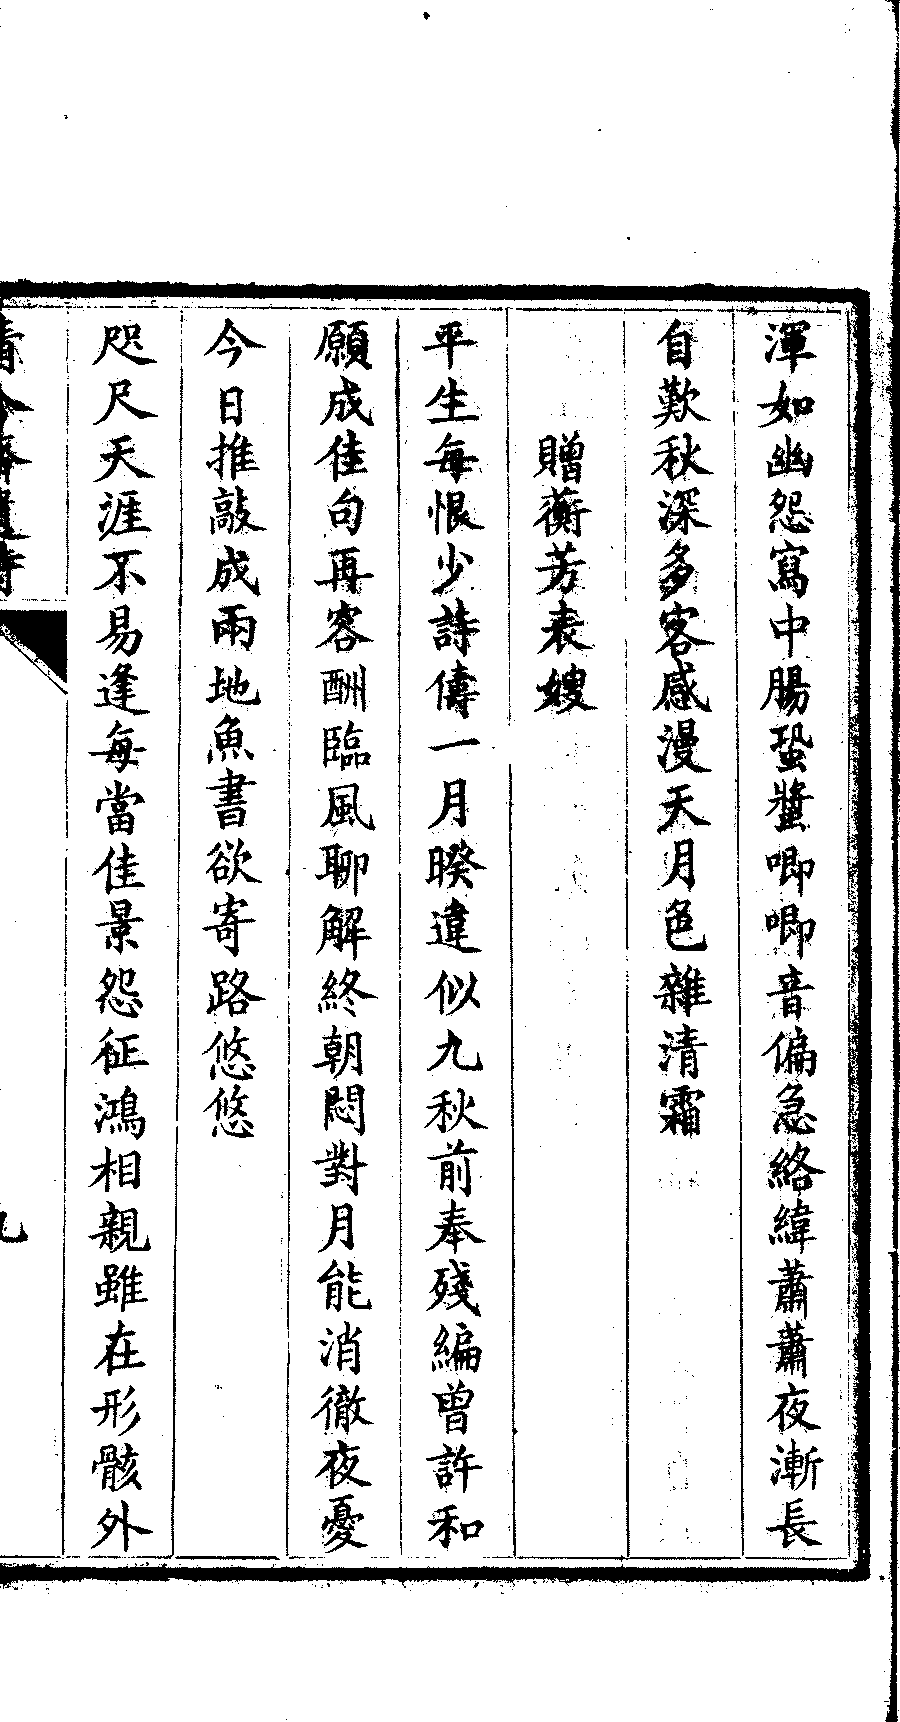 渾如幽怨寫中腸蛩螿唧唧音偏急絡緯蕭蕭夜漸長
自歎秋深多客感漫天月色雜清霜
贈蘅芳表嫂
平生每恨少詩儔一月暌違似九秋前奉殘編曾許和
願成佳句再客酬臨風聊解終朝悶對月能消徹夜憂
今日推敲成兩地魚書欲寄路悠悠
咫尺天涯不易逢每當佳景怨征鴻相親雖在形骸外
九